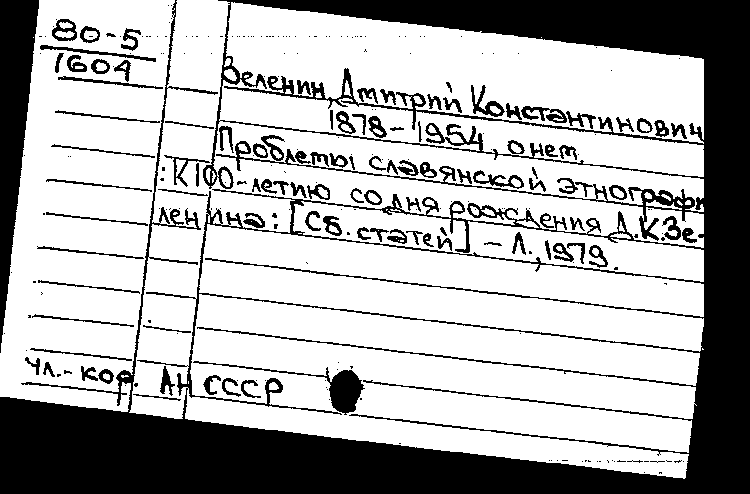 80-5
1604
Зеленин, Дмитрий Константинович
1878-1954, о нем.
Проблемы славянской этнографи
: К 100-летию со дня рождения Д.К.Зе-
ленина: [Сб. статей]. - Л., 1979.
чл.-кор. АН СССР